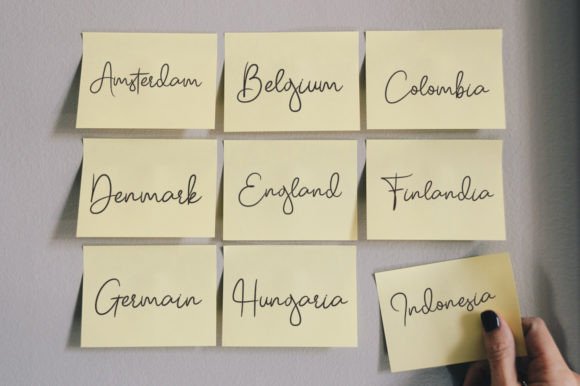 Amsterdam
Belgium
Colombia
Denmark
England
Finlandia
Germain
Hungaria
Indonesia